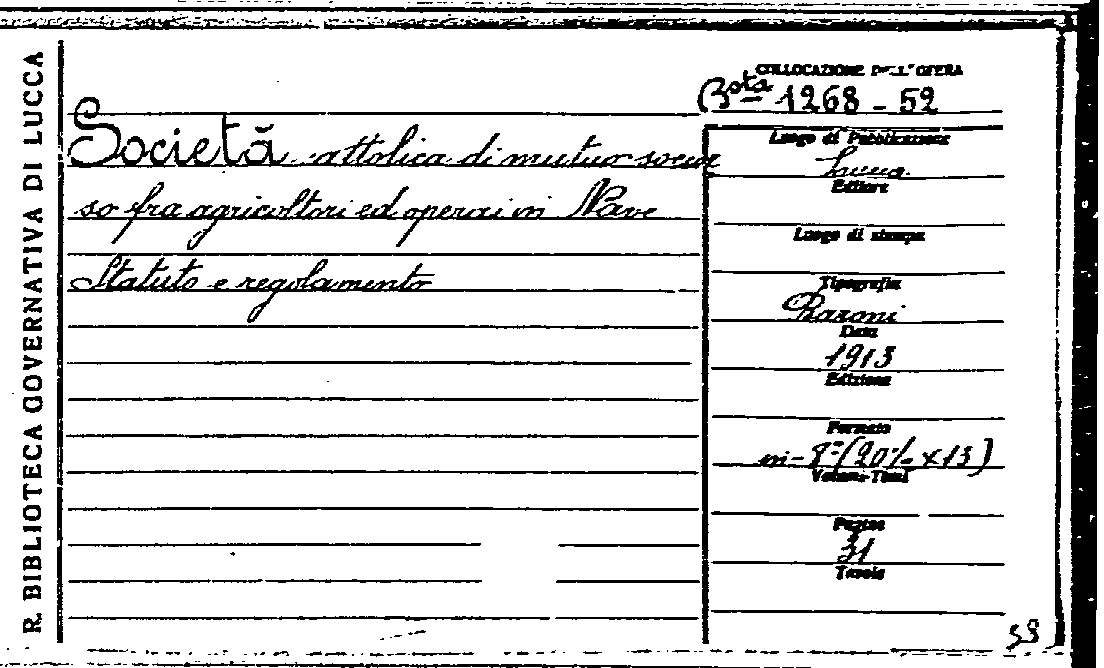 R. BIBLIOTECA GOVERNATIVA DI LUCCA
COLLOCAZIONE DELL'OPERA
Bsta 1268 - 52
Società cattolica di mutuo soccor
so fra agricoltori ed operai in Nave
Statuto e regolamento
Luogo di Pubblicazione
Lucca
Editore
Luogo di stampa
Tipografia
Baroni
Data
1913
Edizione
Formato
in-8° (20½ x 13)
Volumi-Tomi
Pagine
31
Tavole